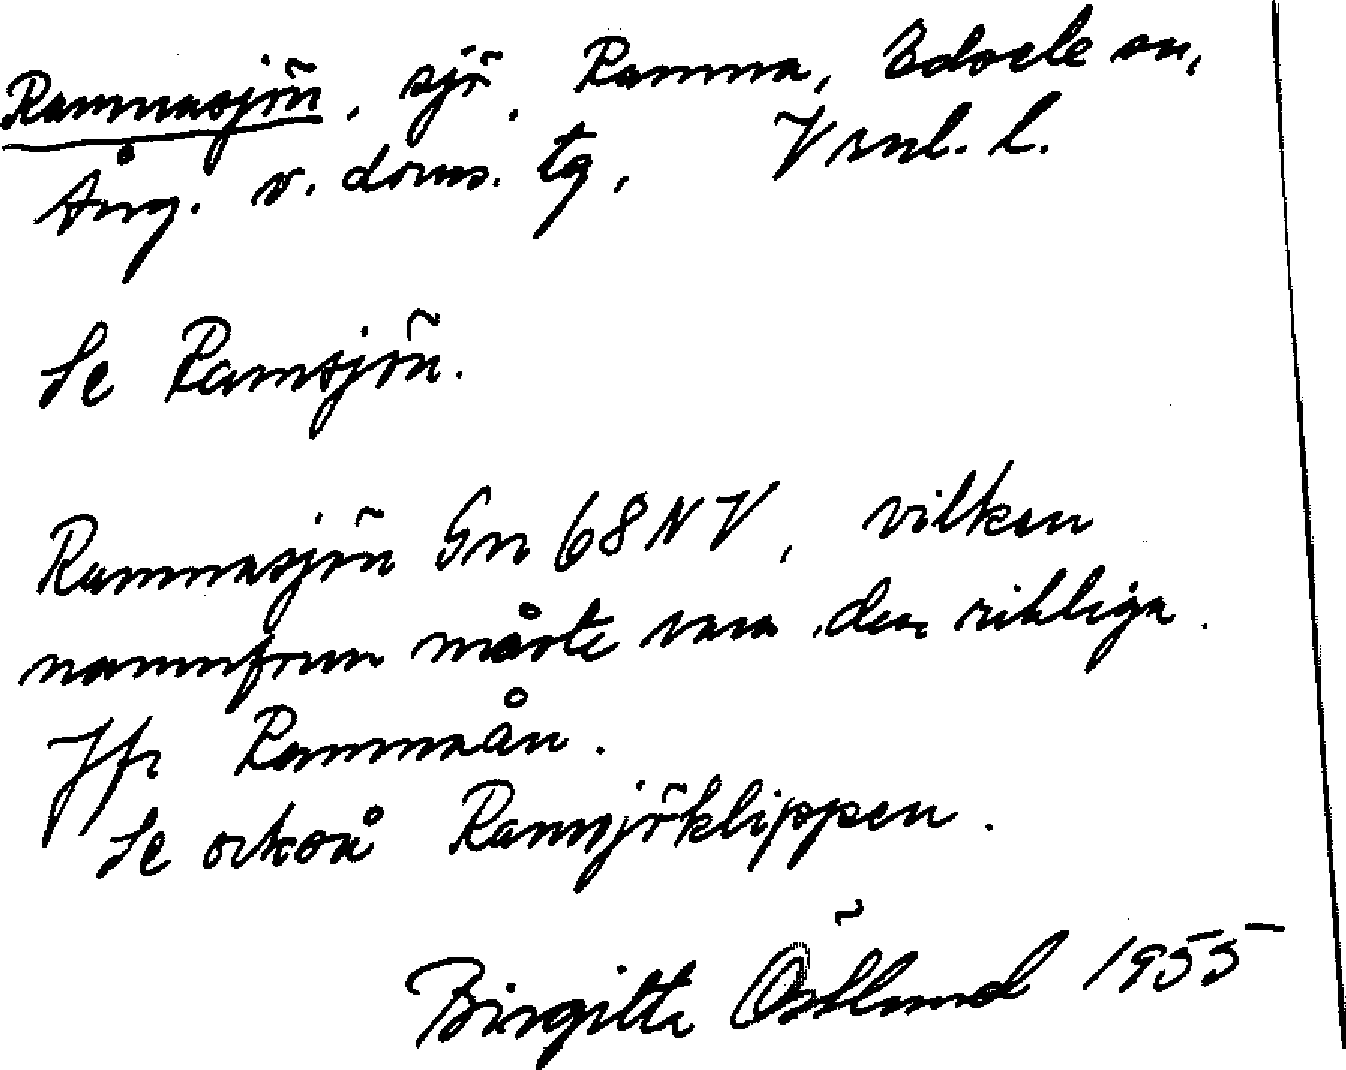 Rammasjön, sjö, Ramma, Edsele sn,
Ång. v. doms. tg, Vrnl. l.
Se Ramsjön.
Rammasjön Gn 68 NV, vilken
namnform måste vara den riktiga.
Jfr Rammaån.
Se också Ramsjöklippen.
Birgitta Östlund 1955